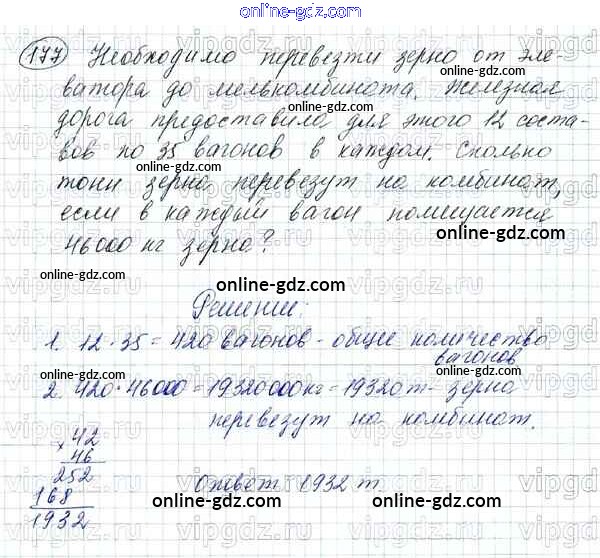 177 Необходимо перевезти зерно от эле-
ватора до мелькомбината. Железная
дорога предоставила для этого 12 соста-
вов по 35 вагонов в каждом. Сколько
тонн зерна перевезут на комбинат,
если в каждый вагон помещается
46000 кг зерна?
Решение:
1. 12 · 35 = 420 вагонов - общее количество
вагонов
2. 420 · 46000 = 19320000 кг = 19320 т - зерна
перевезут на комбинат.
× 42
46
252
168
1932
Ответ 1932 т
online-gdz.com
online-gdz.com
online-gdz.com
online-gdz.com
online-gdz.com
online-gdz.com
online-gdz.com
online-gdz.com
online-gdz.com
online-gdz.com
online-gdz.com
online-gdz.com
online-gdz.com
online-gdz.com